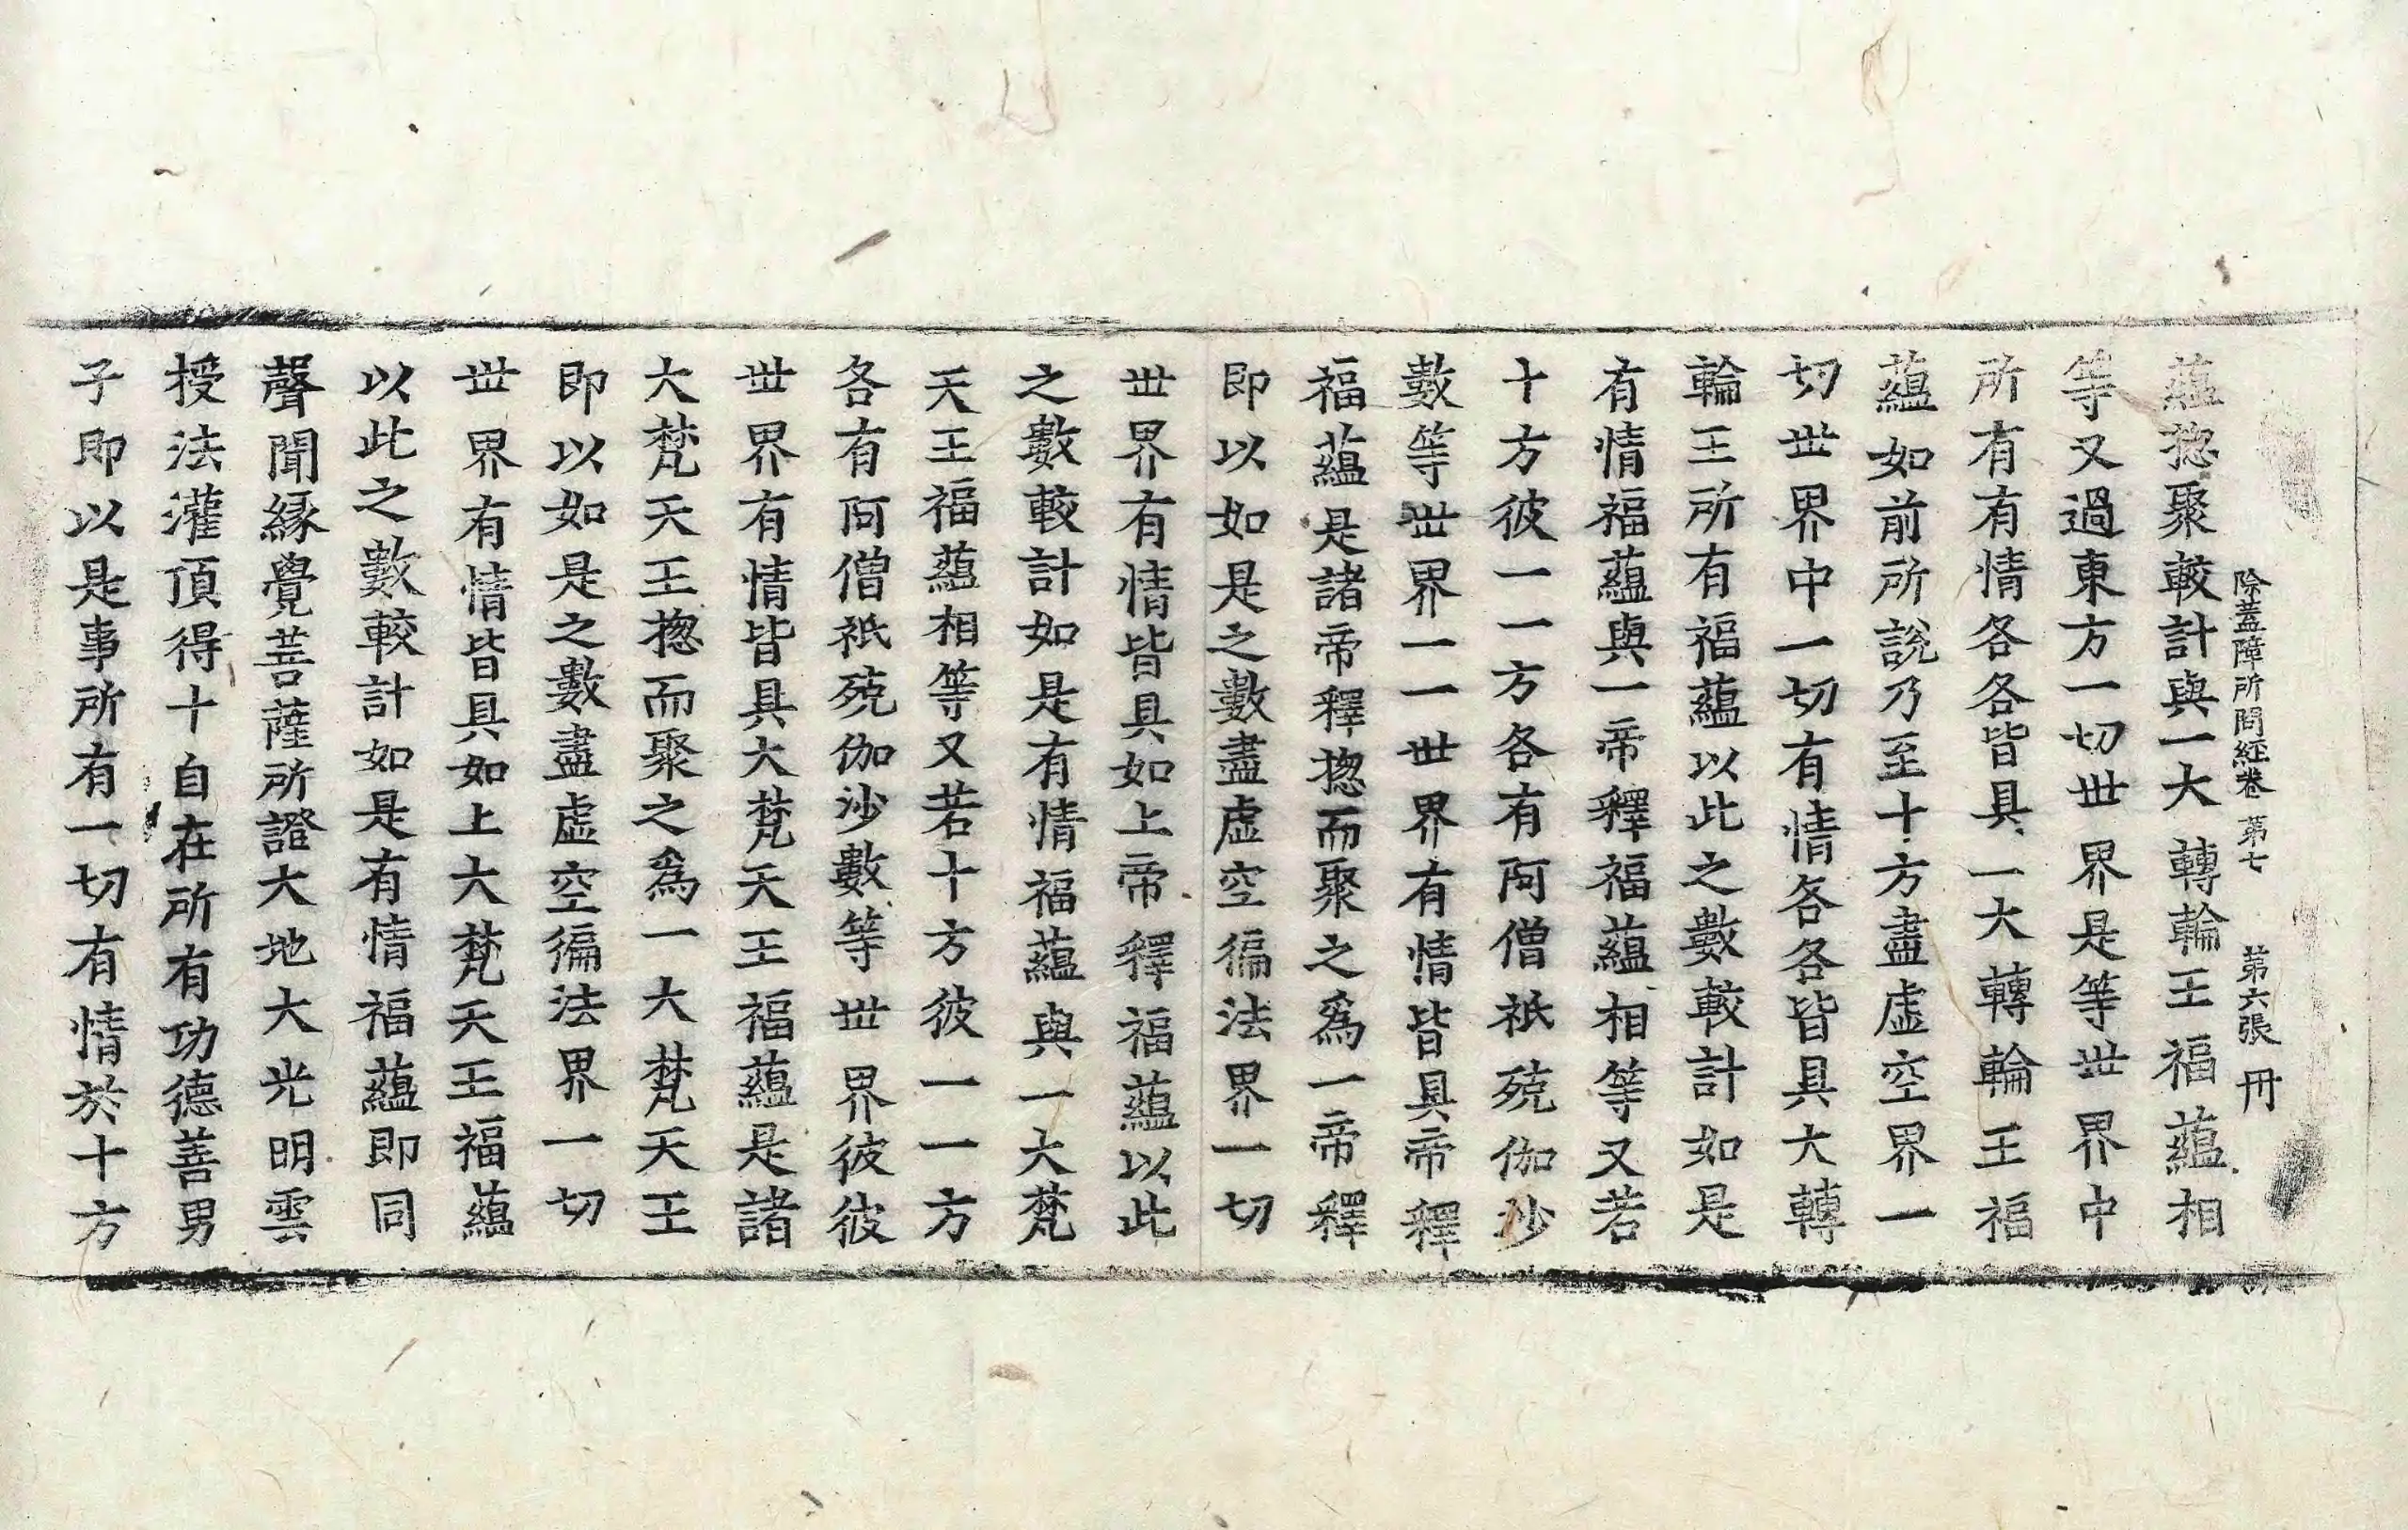 除蓋障所問經卷第七　第六張　冊
蘊揔聚較計與一大轉輪王福蘊相
等又過東方一切世界是等世界中
所有有情各各皆具一大轉輪王福
蘊如前所說乃至十方盡虛空界一
切世界中一切有情各各皆具大轉
輪王所有福蘊以此之數較計如是
有情福蘊與一帝釋福蘊相等又若
十方彼一一方各有阿僧祇殑伽沙
數等世界一一世界有情皆具帝釋
福蘊是諸帝釋揔而聚之爲一帝釋
即以如是之數盡虛空徧法界一切
世界有情皆具如上帝釋福蘊以此
之數較計如是有情福蘊與一大梵
天王福蘊相等又若十方彼一一方
各有阿僧祇殑伽沙數等世界彼彼
世界有情皆具大梵天王福蘊是諸
大梵天王揔而聚之爲一大梵天王
即以如是之數盡虛空徧法界一切
世界有情皆具如上大梵天王福蘊
以此之數較計如是有情福蘊即同
聲聞緣覺菩薩所證大地大光明雲
授法灌頂得十自在所有功德善男
子即以是事所有一切有情於十方